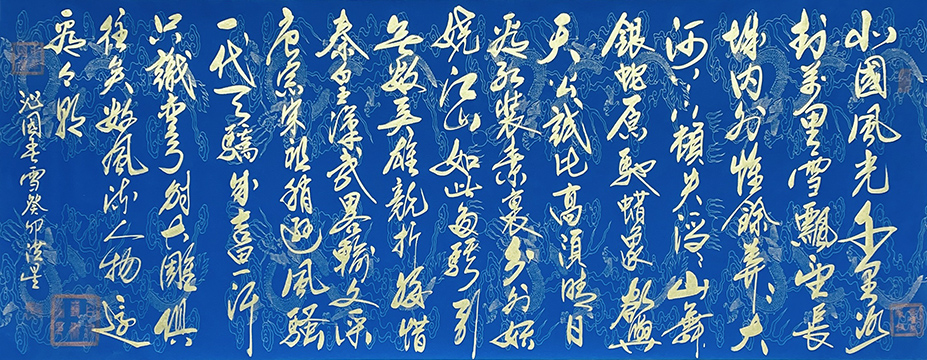 北國風光千里冰
封萬里雪飄望長
城内外惟餘莽々大
河上下頓失滔々山舞
銀蛇原馳蜡象欲與
天公試比高須晴日
看紅裝素裹分外妖
嬈江山如此多嬌引
無數英雄競折腰惜
秦皇漢武畧輸文采
唐宗宋祖稍遜風騷
一代天驕成吉思汗
只識彎弓射大雕俱
往矣數風流人物還
看今朝
沁園春雪癸卯洪